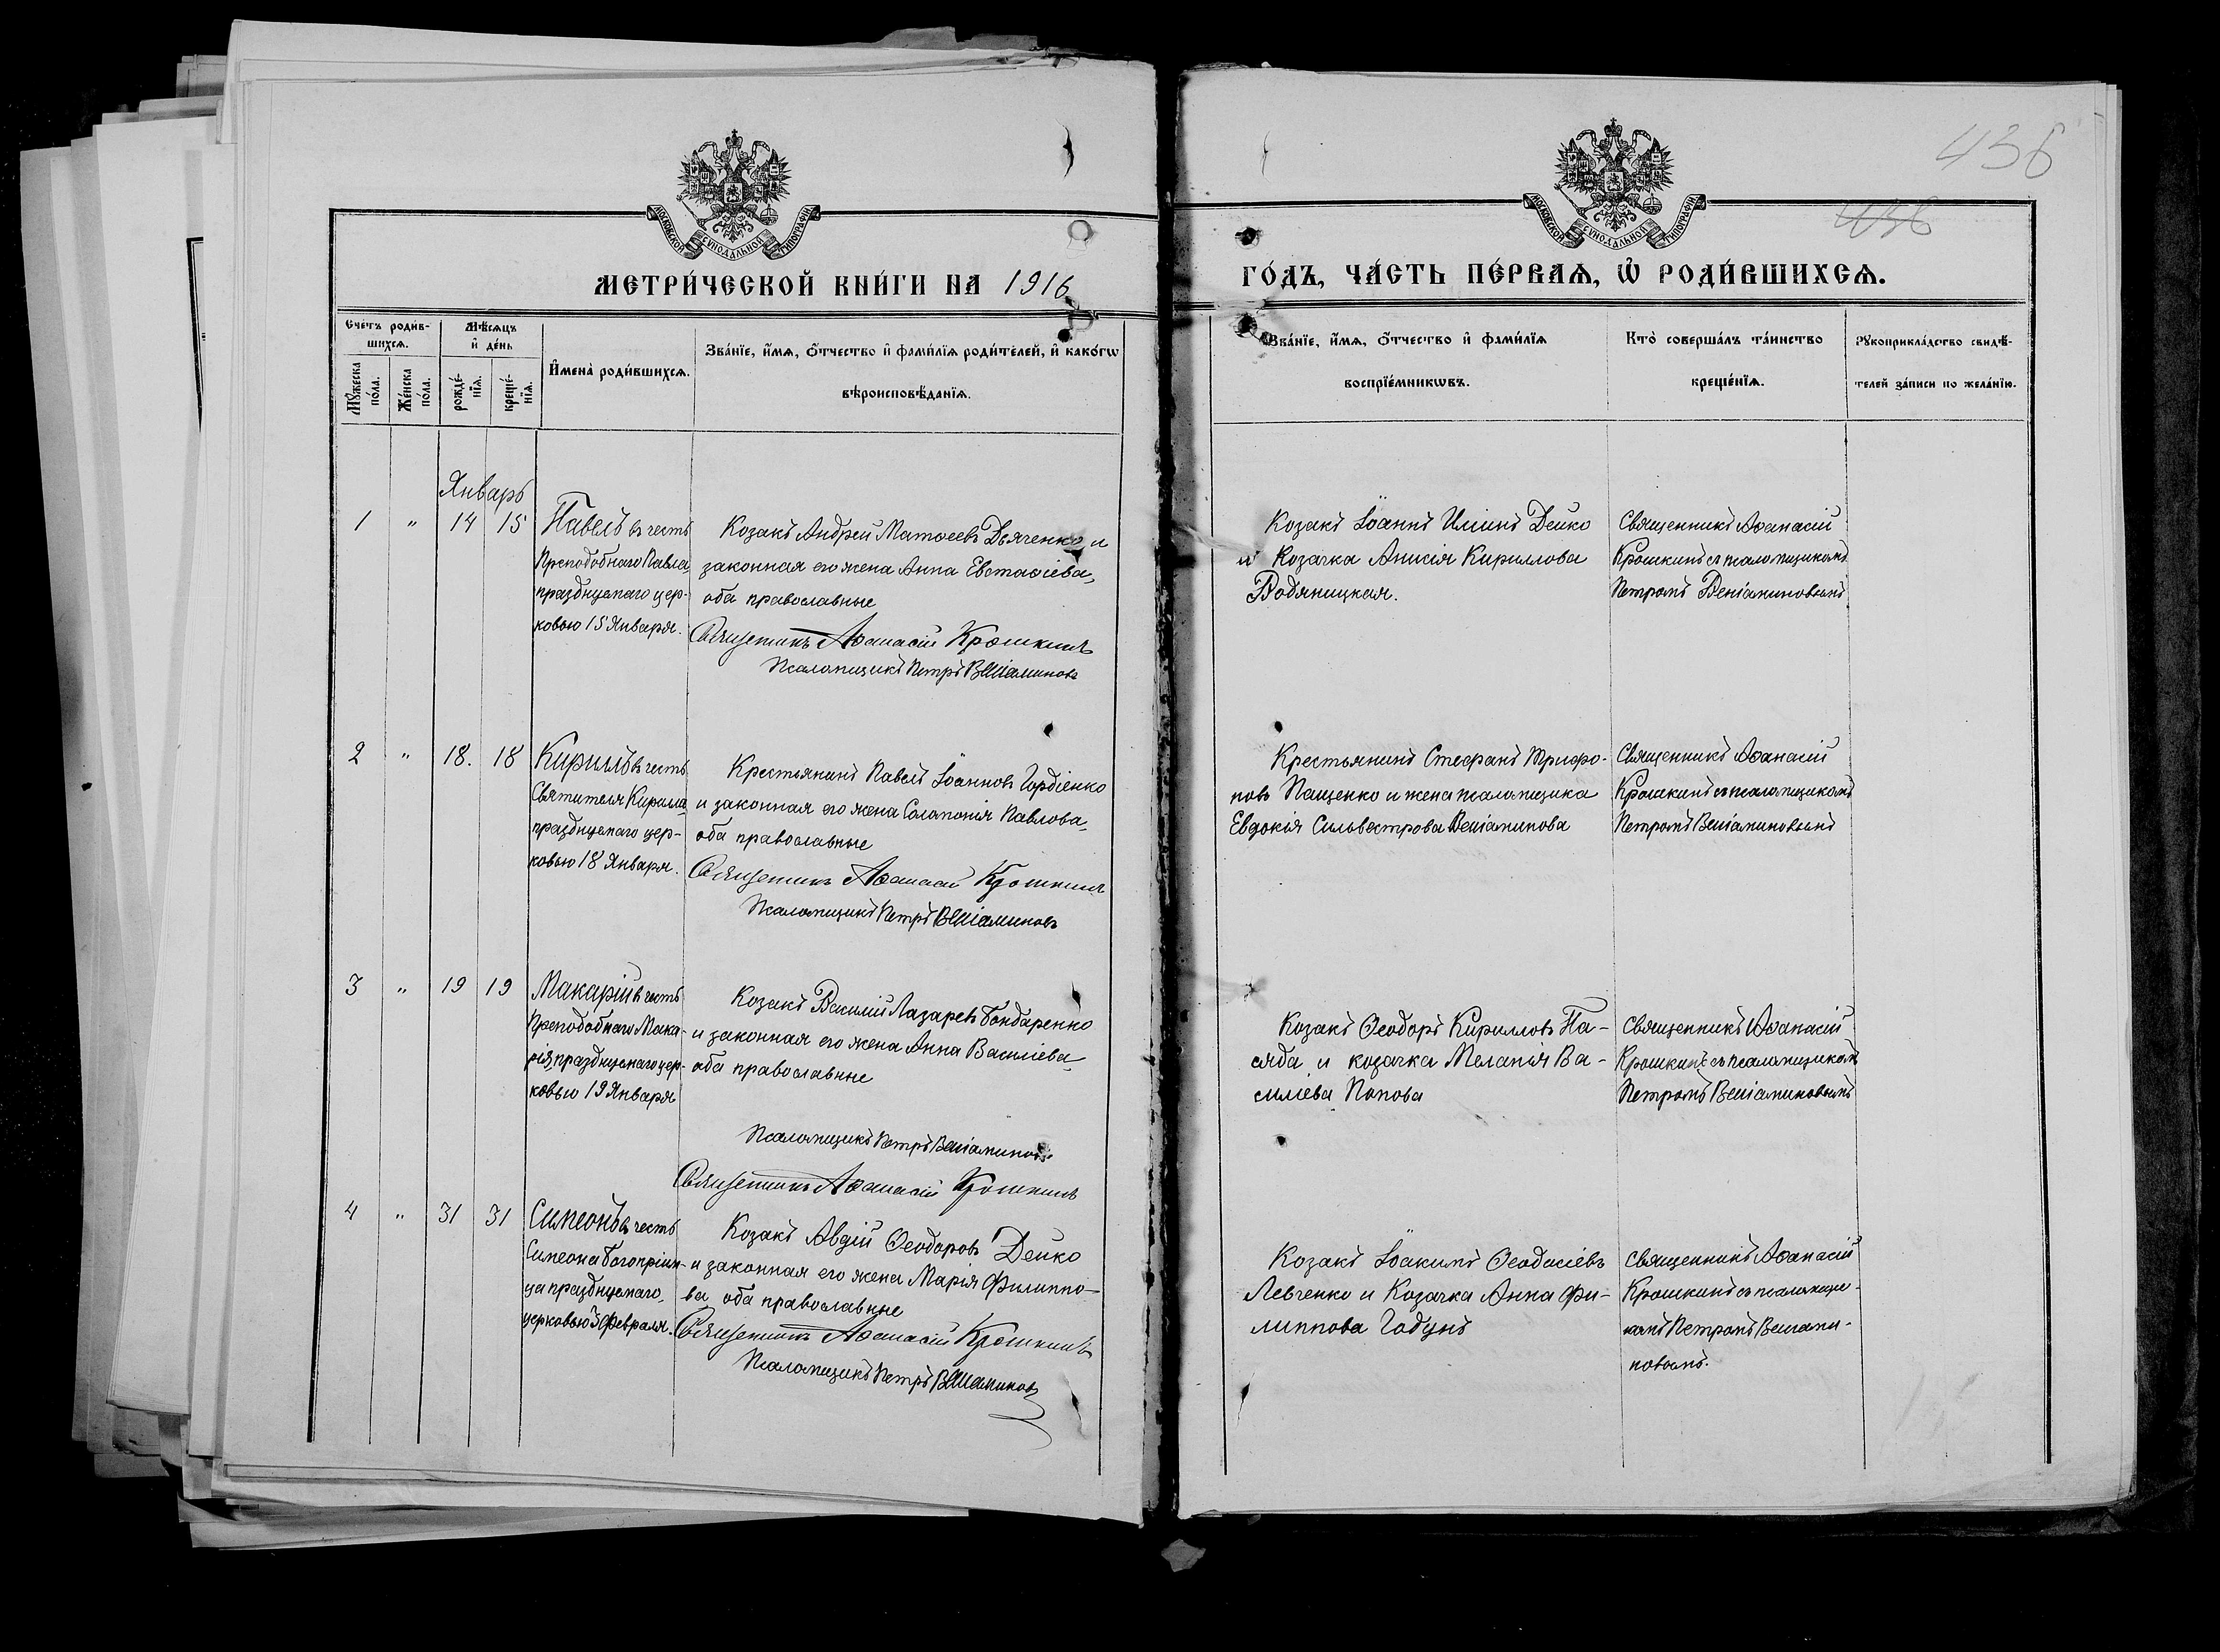 436
436
МОСКОВСКОЙ СѴНОДАЛЬНОЙ ТИПОГРАФІИ
МОСКОВСКОЙ СѴНОДАЛЬНОЙ ТИПОГРАФІИ
МЕТРИ́ЧЕСКОЙ КНИ́ГИ НА 1916
ГО́ДЪ, ЧА́СТЬ ПЕ́РВАѦ, Ѡ҆ РОДИ́ВШИХСѦ.
Сче́тъ роди́в-
шихсѧ.
Мꙋ́жеска
по́ла.
Же́нска
по́ла.
Мѣ́сѧцъ
и҆ де́нь
рожде́-
нїѧ.
креще́-
нїѧ.
И҆мена̀ роди́вшихсѧ.
Зва́нїе, и҆́мѧ, ѻ҆́тчество и҆ фами́лїѧ роди́телей, и҆ како́гѡ
вѣроисповѣ́данїѧ.
Зва́нїе, и҆́мѧ, ѻ҆́тчество и҆ фами́лїѧ
воспрїе́мникѡвъ.
Кто̀ соверша́лъ та́инство
креще́нїѧ.
Рꙋкоприкла́дство свидѣ́-
телей за́писи по жела́нїю.
Январь
1 " 14 15
Павелъ въ честь
Преподобнаго Павла,
празднуемаго цер-
ковью 15 Января.
Козакъ Андрей Матѳеевъ Дьяченко и
законная его жена Анна Евстаѳіева,
оба православные
Священникъ Аѳанасій Крошкинъ
Псаломщикъ Петръ Веніаминовъ
Козакъ Іоаннъ Иліинъ Дейко
и Козачка Анисія Кириллова
Водяницкая.
Священникъ Аѳанасій
Крошкинъ съ псаломщикомъ
Петромъ Веніаминовымъ
2 " 18. 18
Кириллъ въ честь
Святителя Кирилла,
празднуемаго цер-
ковью 18 Января.
Крестьянинъ Павелъ Іоанновъ Гордіенко
и законная его жена Соломонія Павлова,
оба православные
Священникъ Аѳанасій Крошкинъ
Псаломщикъ Петръ Веніаминовъ
Крестьянинъ Стефанъ Трифо-
новъ Пащенко и жена псаломщика
Евдокія Сильвестрова Веніаминова
Священникъ Аѳанасій
Крошкинъ съ псаломщикомъ
Петромъ Веніаминовымъ
3 " 19 19
Макарій въ честь
Преподобнаго Мака-
рія, празднуемаго цер-
ковью 19 Января
Козакъ Василій Лазаревъ Бондаренко
и законная его жена Анна Василіева,
оба православные
Псаломщикъ Петръ Веніаминовъ
Священникъ Аѳанасій Крошкинъ
Козакъ Ѳеодоръ Кирилловъ На-
сяда и козачка Меланія Ва-
силіева Попова
Священникъ Аѳанасій
Крошкинъ съ псаломщикомъ
Петромъ Веніаминовымъ
4 " 31 31
Симеонъ въ честь
Симеона Богопріим-
ца празднуемаго
церковью 3 Февраля.
Козакъ Авдій Ѳеодоровъ Дейко
и законная его жена Марія Филиппо-
ва оба православные
Священникъ Аѳанасій Крошкинъ
Псаломщикъ Петръ Веніаминовъ
Козакъ Іоакимъ Ѳеодосіевъ
Левченко и Козачка Анна Фи-
липпова Годунъ
Священникъ Аѳанасій
Крошкинъ съ псаломщи-
комъ Петромъ Веніами-
новымъ.